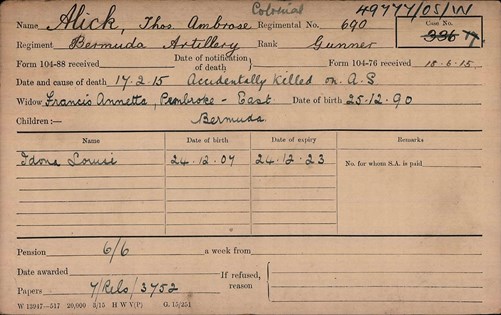 Colonial 49777/05/W
Name Alick, Thos. Ambrose Regimental No. 690 Case No.
Regiment Bermuda Artillery Rank Gunner 336
Form 104-88 received Date of notification of death Form 104-76 received 18.6.15
Date and cause of death 17.2.15 Accidentally killed on A.S
Widow Francis Annetta, Pembroke - East Date of birth 25.12.90
Children:— Bermuda
Name Date of birth Date of expiry Remarks
Idona Louisi 24.12.07 24.12.23 No. for whom S.A. is paid
Pension 6/6 a week from
Date awarded
If refused, reason
Papers 7/Rels/3752
W 13947—517 20,000 3/15 H W V(P) G. 15/251